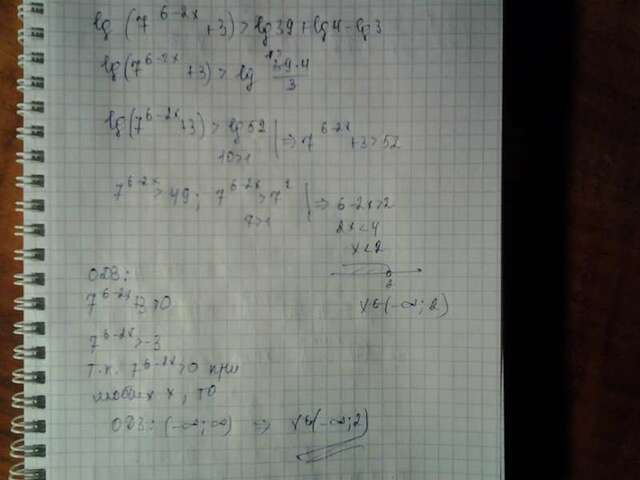 lg (7^(6-2x) + 3) > lg 39 + lg 4 - lg 3
lg (7^(6-2x) + 3) > lg (39·4)/3
lg (7^(6-2x) + 3) > lg 52 | ⇒ 7^(6-2x) + 3 > 52
10 > 1
7^(6-2x) > 49; 7^(6-2x) > 7^2 | ⇒ 6-2x > 2
7 > 1
2x < 4
x < 2
2
x∈(-∞; 2)
ОДЗ:
7^(6-2x) + 3 > 0
7^(6-2x) > -3
Т.к. 7^(6-2x) > 0 при
любых x, то
ОДЗ: (-∞; ∞) ⇒ x∈(-∞; 2)